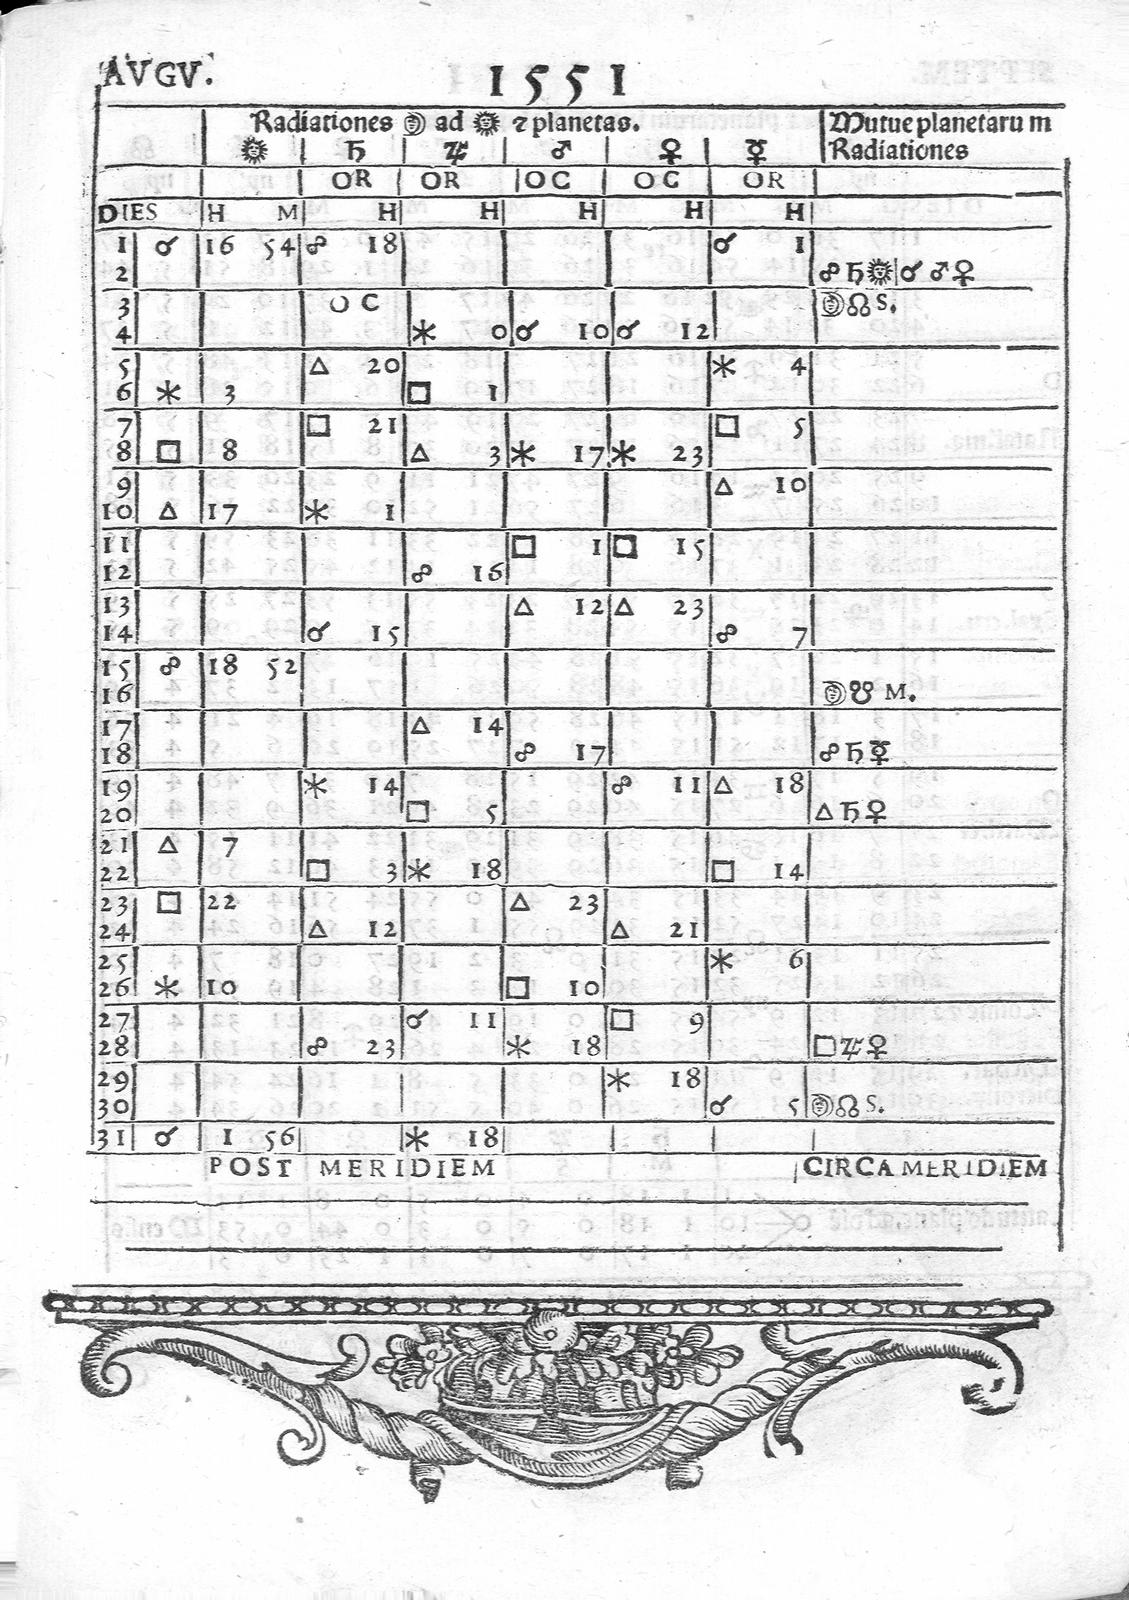 AVGV. 1551
Radiationes ☽ ad ☉ ⁊ planetas. Mutue planetarum
☉ ♄ ♃ ♂ ♀ ☿ Radiationes
OR OR OC OC OR
DIES H M H H H H H
1 ☌ 16 54 ☍ 18 ☌ 1
2 ☍ ♄ ☉ ☌ ♂ ♀
3 OC ☽ ☊ S.
4 ⚹ 0 ☌ 10 ☌ 12
5 △ 20 ⚹ 4
6 ⚹ 3 □ 1
7 □ 21 □ 5
8 □ 8 △ 3 ⚹ 17 ⚹ 23
9 △ 10
10 △ 17 ⚹ 1
11 □ 1 □ 15
12 ☍ 16
13 △ 12 △ 23
14 ☌ 15 ☍ 7
15 ☍ 18 52
16 ☽ ☋ M.
17 △ 14
18 ☍ 17 ☍ ♄ ☿
19 ⚹ 14 ☍ 11 △ 18
20 □ 5 △ ♄ ♀
21 △ 7
22 □ 3 ⚹ 18 □ 14
23 □ 22 △ 23
24 △ 12 △ 21
25 ⚹ 6
26 ⚹ 10 □ 10
27 ☌ 11 □ 9
28 ☍ 23 ⚹ 18 □ ♃ ♀
29 ⚹ 18
30 ☌ 5 ☽ ☊ S.
31 ☌ 1 56 ⚹ 18
POST MERIDIEM CIRCA MERIDIEM